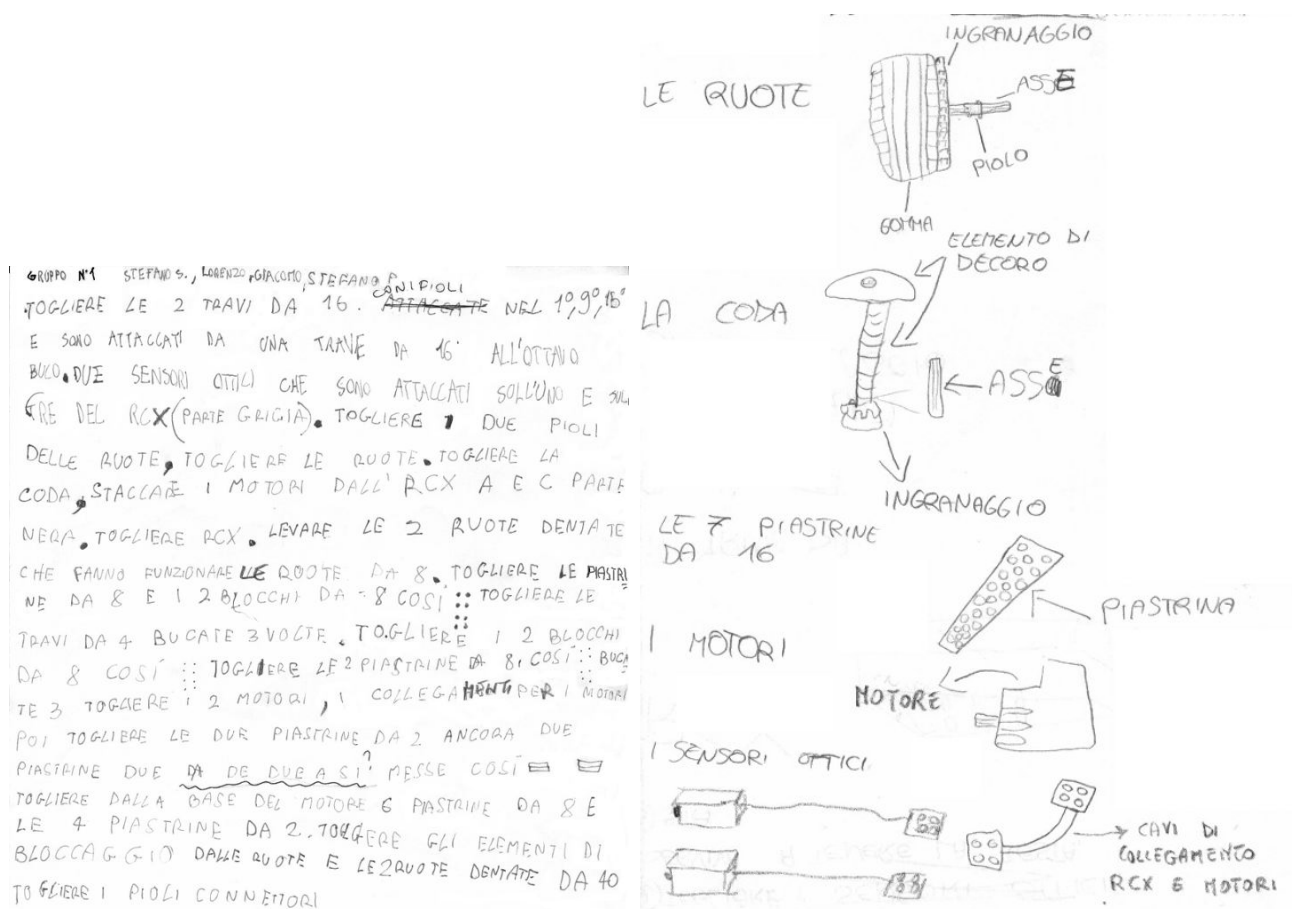 GRUPPO N°1 STEFANO S., LORENZO, GIACOMO, STEFANO P.
CON I PIOLI
TOGLIERE LE 2 TRAVI DA 16. ATTACCATE NEL 1°, 9°, 16°
E SONO ATTACCATI DA UNA TRAVE DA 16 ALL'OTTAVO
BUCO. DUE SENSORI OTTICI CHE SONO ATTACCATI SULL'UNO E SUL
TRE DEL RCX (PARTE GRIGIA). TOGLIERE I DUE PIOLI
DELLE RUOTE, TOGLIERE LE RUOTE. TOGLIERE LA
CODA, STACCARE I MOTORI DALL'RCX A E C PARTE
NERA. TOGLIERE RCX. LEVARE LE 2 RUOTE DENTATE
CHE FANNO FUNZIONARE LE RUOTE DA 8. TOGLIERE LE PIASTRI
NE DA 8 E I 2 BLOCCHI DA 8 COSÍ TOGLIERE LE
TRAVI DA 4 BUCATE 3 VOLTE. TOGLIERE I 2 BLOCCHI
DA 8 COSÍ TOGLIERE LE 2 PIASTRINE DA 8, COSÍ BUCA
TE 3 TOGLIERE I 2 MOTORI, I COLLEGAMENTI PER I MOTORI
POI TOGLIERE LE DUE PIASTRINE DA 2 ANCORA DUE
PIASTRINE DUE DA DE DUE A SI? MESSE COSÍ
TOGLIERE DALLA BASE DEL MOTORE 6 PIASTRINE DA 8 E
LE 4 PIASTRINE DA 2. TOGLIERE GLI ELEMENTI DI
BLOCCAGGIO DALLE RUOTE E LE 2 RUOTE DENTATE DA 40
TOGLIERE I PIOLI CONNETTORI
LE RUOTE
INGRANAGGIO
ASSE
PIOLO
GOMMA
LA CODA
ELEMENTO DI
DECORO
ASSE
INGRANAGGIO
LE 7 PIASTRINE
DA 16
PIASTRINA
I MOTORI
MOTORE
I SENSORI OTTICI
CAVI DI
COLLEGAMENTO
RCX E MOTORI